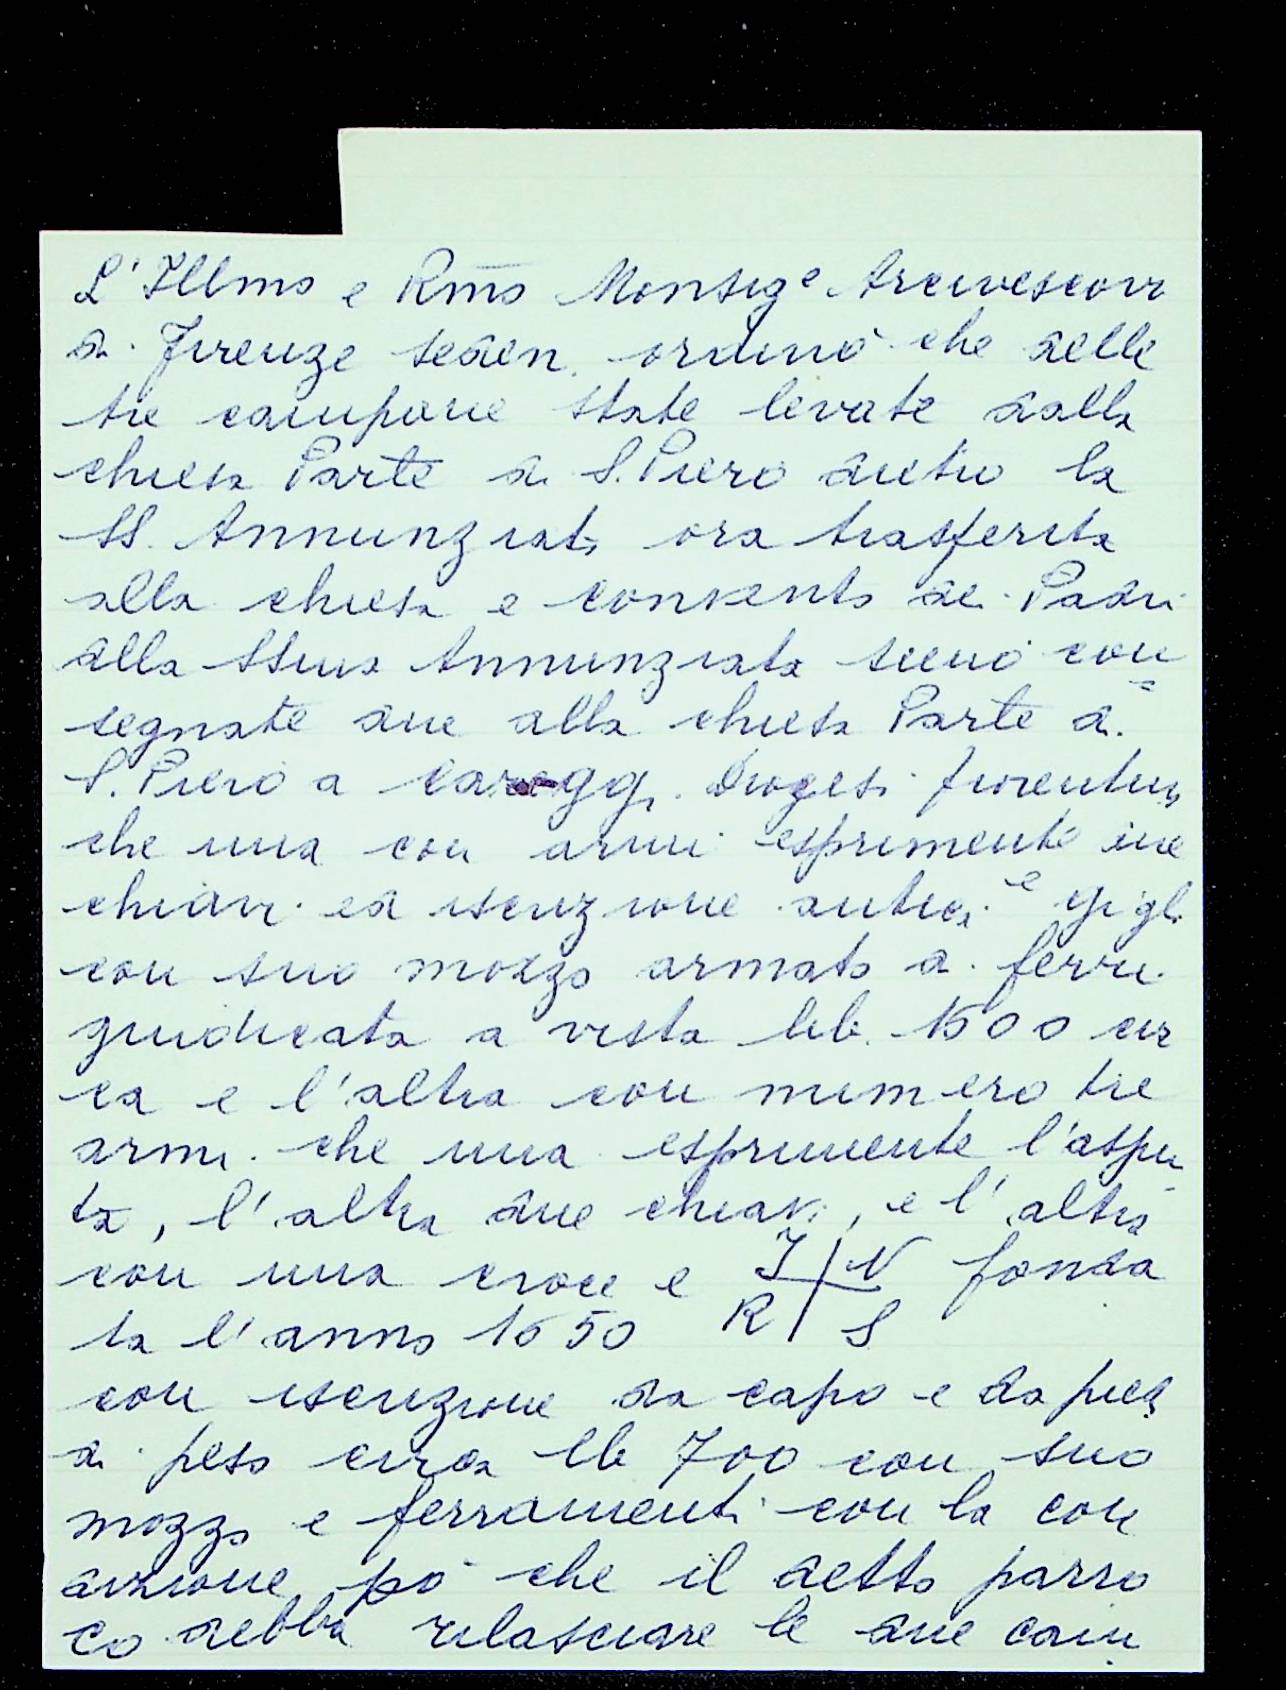 L'Illmo e Rmo Monsig.e Arcivescovo
di Firenze seden. ordinò che delle
tre campane state levate dalla
chiesa Parle di S. Piero dietro la
SS. Annunziata ora trasferita
alla chiesa e convento dei Padri
della SSma Annunziata sieno con=
segnate due alla chiesa Parle di
S. Piero a Careggi. Diogesi fiorentina
che una con armi esprimente due
chiavi ed iscrizione antica e gigli
con suo mozzo armato di ferri
giudicata a vista lib. 1500 cir
ca e l'altra con numero tre
armi che una esprimente l'aspu
ta, l'altra due chiavi, e l'altra
con una croce e I N fonda
ta l'anno 1650 R S
con iscrizione da capo e da piedi
di peso circa lb 700 con suo
mozzo e ferramenti con la con
dizione pò che il detto parro
co debba rilasciare le due cam